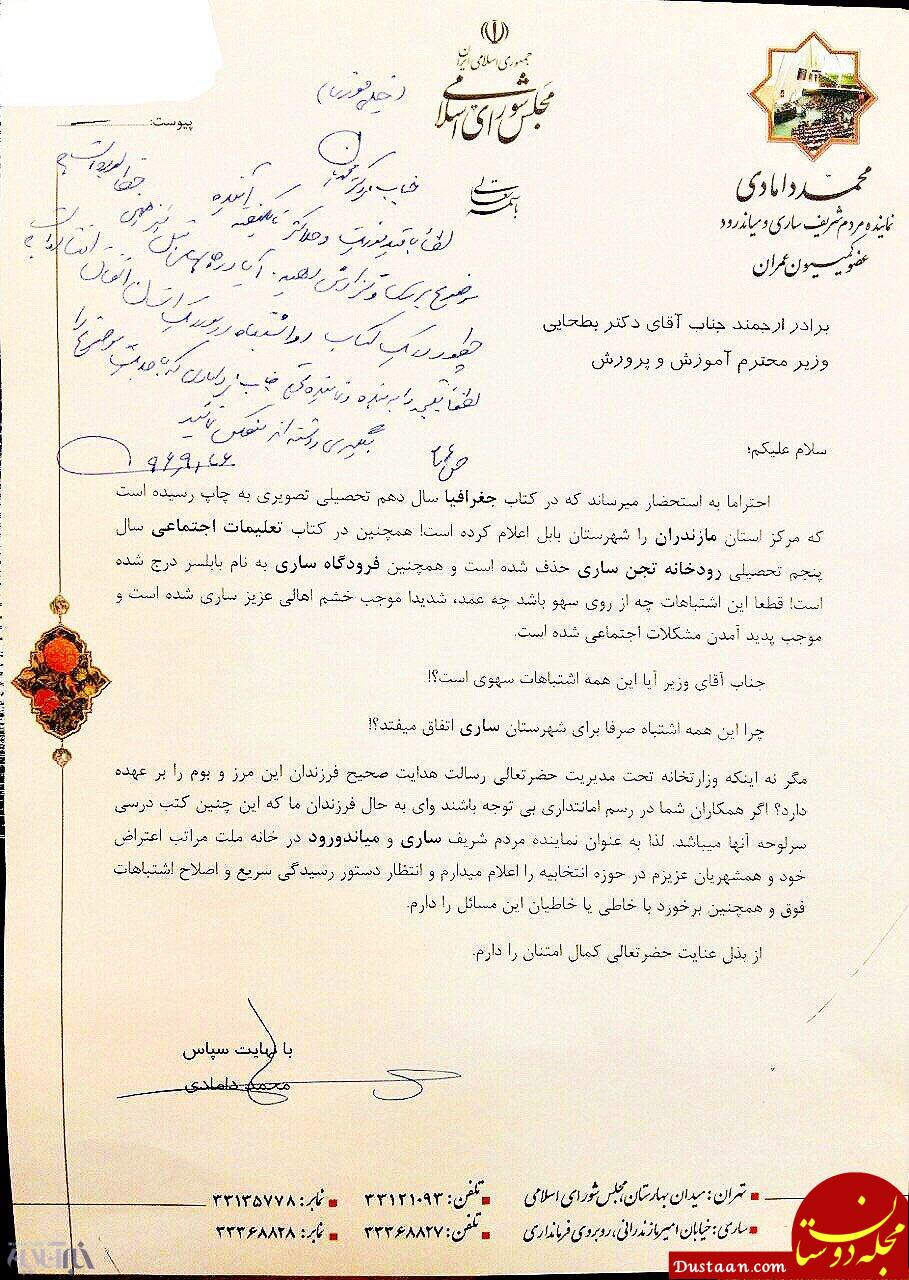 جمهوری اسلامی ایران
مجلس شورای اسلامی
پیوست:
باسمه تعالی
محمد دامادی
نماینده مردم شریف ساری و میاندرود
عضو کمیسیون عمران
(خیلی فوری)
جناب دکتر
لطفاً با قید فوریت و حداکثر تا یکهفته آینده
موضوع بررسی و گزارش دهید. آیا در چاپ‌های قبل نیز همین
چطور در یک کتاب دو اشتباه در مورد یک استان اتفاق
لطفاً نتیجه را به بنده و نماینده محترم جناب دامادی که با جدیت موضوع را
پیگیری داشته‌اند منعکس نمائید
۹۶٫۹٫۲۶
برادر ارجمند جناب آقای دکتر بطحایی
وزیر محترم آموزش و پرورش
سلام علیکم؛
احتراما به استحضار میرساند که در کتاب جغرافیا سال دهم تحصیلی تصویری به چاپ رسیده است
که مرکز استان مازندران را شهرستان بابل اعلام کرده است! همچنین در کتاب تعلیمات اجتماعی سال
پنجم تحصیلی رودخانه تجن ساری حذف شده است و همچنین فرودگاه ساری به نام بابلسر درج شده
است! قطعا این اشتباهات چه از روی سهو باشد چه عمد، شدیدا موجب خشم اهالی عزیز ساری شده است و
موجب پدید آمدن مشکلات اجتماعی شده است.
جناب آقای وزیر آیا این همه اشتباهات سهوی است؟!
چرا این همه اشتباه صرفا برای شهرستان ساری اتفاق میفتد؟!
مگر نه اینکه وزارتخانه تحت مدیریت حضرتعالی رسالت هدایت صحیح فرزندان این مرز و بوم را بر عهده
دارد؟ اگر همکاران شما در رسم امانتداری بی توجه باشند وای به حال فرزندان ما که این چنین کتب درسی
سرلوحه آنها میباشد. لذا به عنوان نماینده مردم شریف ساری و میاندورود در خانه ملت مراتب اعتراض
خود و همشهریان عزیزم در حوزه انتخابیه را اعلام میدارم و انتظار دستور رسیدگی سریع و اصلاح اشتباهات
فوق و همچنین برخورد با خاطی یا خاطیان این مسائل را دارم.
از بذل عنایت حضرتعالی کمال امتنان را دارم.
با نهایت سپاس
محمد دامادی
تهران: میدان بهارستان، مجلس شورای اسلامی تلفن: ۳۳۱۲۱۰۹۳ نمابر: ۳۳۱۳۵۷۷۸
ساری: خیابان امیرمازندرانی، روبروی فرمانداری تلفن: ۳۳۳۶۸۸۲۷ نمابر: ۳۳۳۶۸۸۲۸
مجله دوستان
Dustaan.com
خبرآنلاین